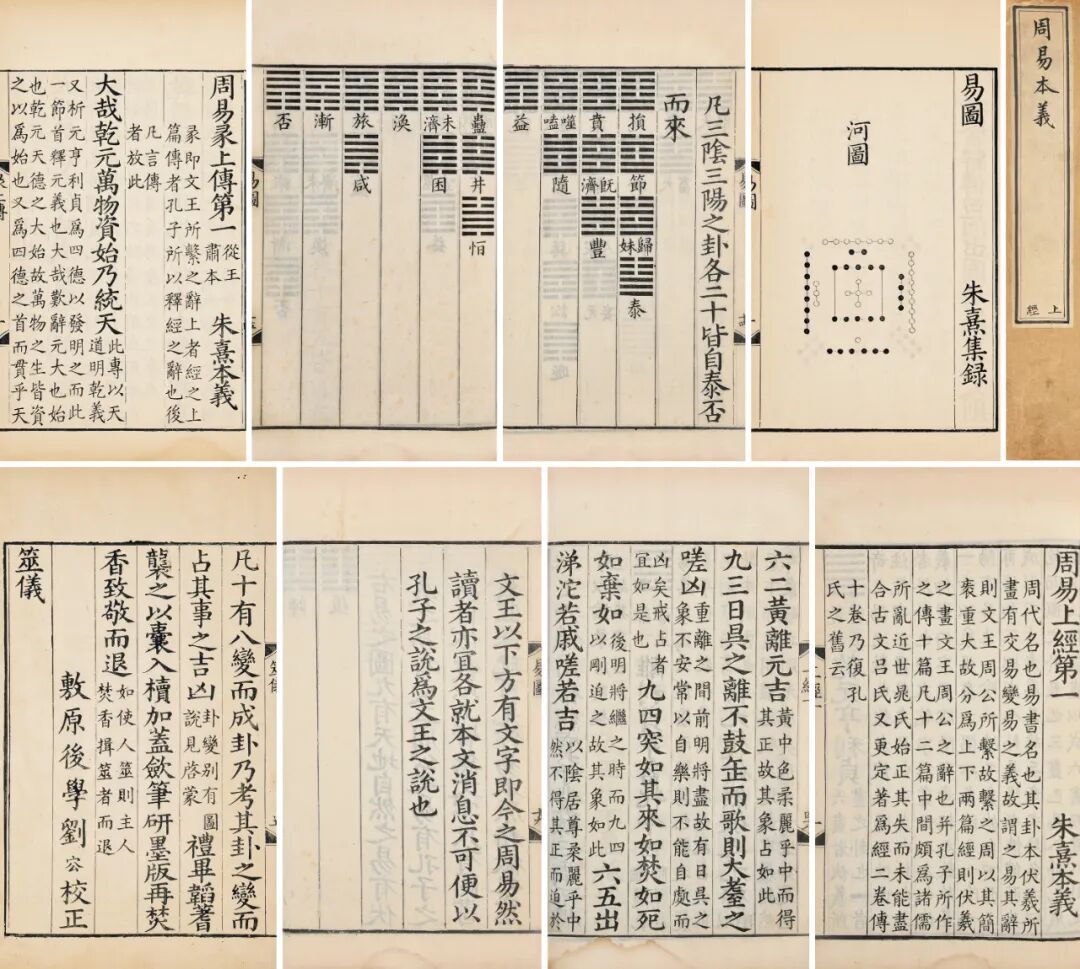 周易本義
上
經
易圖 朱熹集録
河圖
易圖
凡三陰三陽之卦各二十皆自泰否
而來
損
節
歸妹
泰
賁
既濟
豐
噬嗑
隨
益
蠱
井
恒
未濟
困
渙
旅
咸
漸
否
易圖
周易彖上傳第一 從王
肅本 朱熹本義
彖即文王所繫之辭上者經之上
篇傳者孔子所以釋經之辭也後
凡言傳
者放此
大哉乾元萬物資始乃統天 此專以天
道明乾義
又析元亨利貞爲四德以發明之而此
一節首釋元義也大哉歎辭元大也始
也乾元天德之大始故萬物之生皆資
之以爲始也又爲四德之首而貫乎天
周易上經第一 朱熹本義
周代名也易書名也其卦本伏羲所
畫有交易變易之義故謂之易其辭
則文王周公所繫故繫之周以其簡
袠重大故分爲上下兩篇經則伏羲
之畫文王周公之辭也并孔子所作
之傳十篇凡十二篇中間頗爲諸儒
所亂近世晁氏始正其失而未能盡
合古文呂氏又更定著爲經二卷傳
十卷乃復孔
氏之舊云
六二黃離元吉 黃中色柔麗乎中而得
其正故其象占如此
九三日昃之離不鼓缶而歌則大耋之
嗟凶 重離之間前明將盡故有日昃之
象不安常以自樂則不能自處而
凶矣戒占者
宜如是也 九四突如其來如焚如死
如棄如 後明將繼之時而九四
以剛迫之故其象如此 六五出
涕沱若戚嗟若吉 以陰居尊柔麗乎中
然不得其正而迫於
易圖
文王以下方有文字即今之周易然
讀者亦宜各就本文消息不可便以
孔子之説爲文王之説也
筮儀
凡十有八變而成卦乃考其卦之變而
占其事之吉凶 卦變别有圖
説見啓蒙 禮畢韜蓍
襲之以囊入櫝加蓋歛筆研墨版再焚
香致敬而退 如使人筮則主人
焚香揖筮者而退
筮儀
敷原後學劉㝐校正